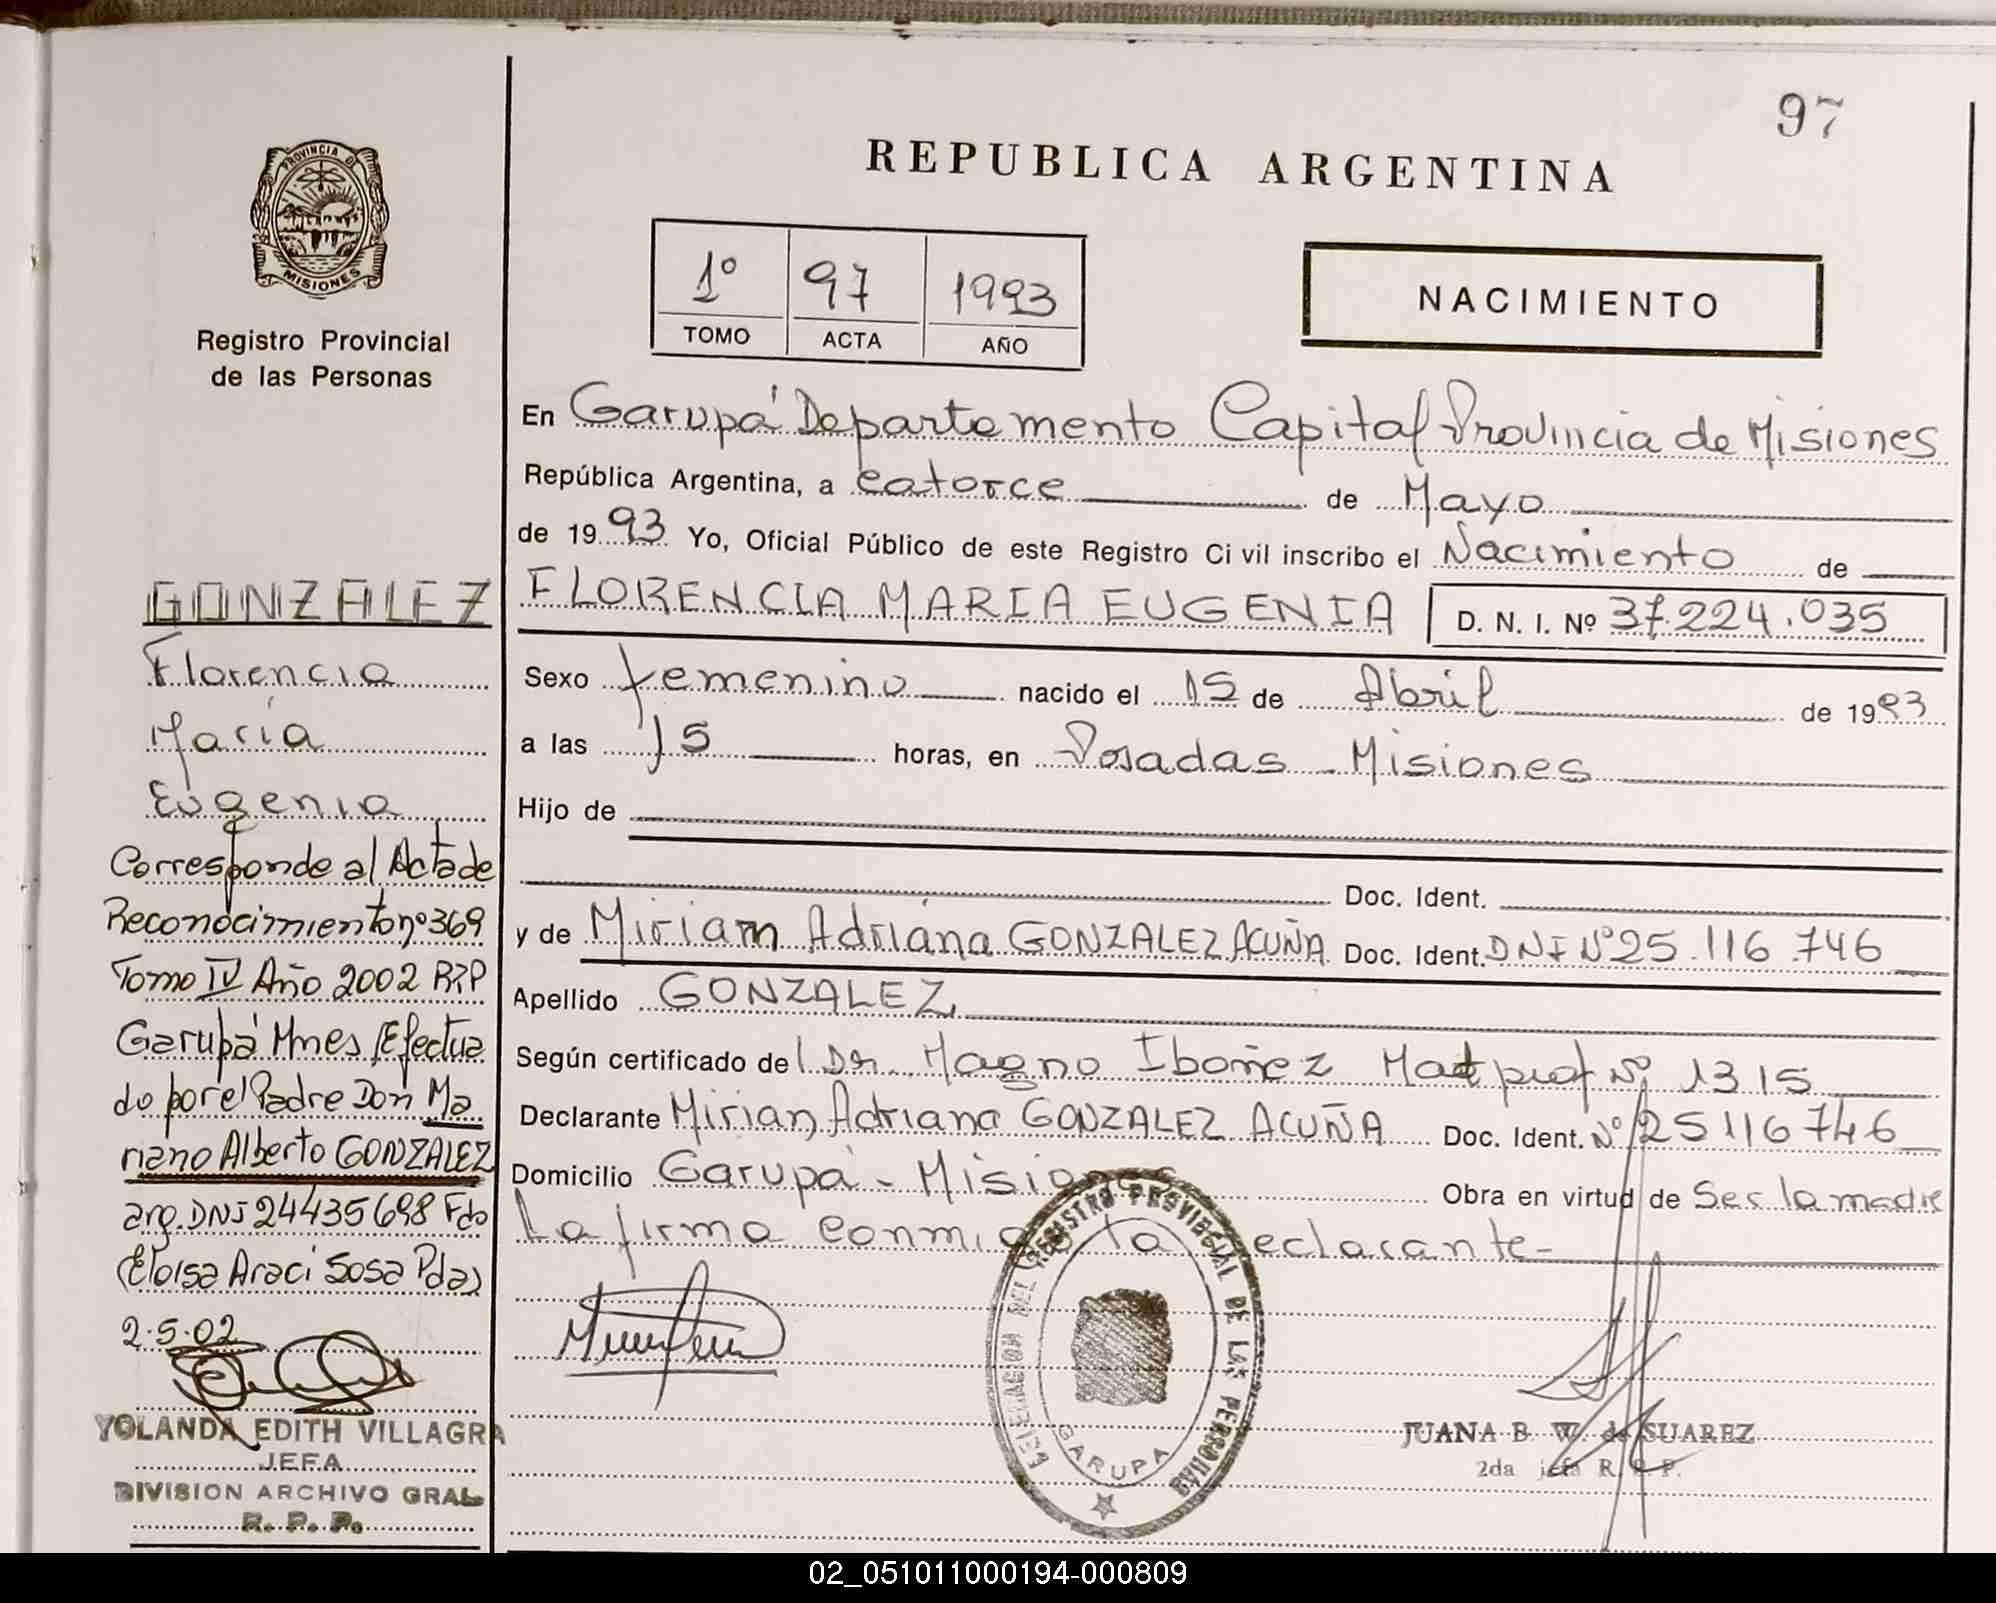 97
REPUBLICA ARGENTINA
PROVINCIA DE
MISIONES
Registro Provincial
de las Personas
1º 97 1993
TOMO ACTA AÑO
NACIMIENTO
En Garupá Departamento Capital Provincia de Misiones
República Argentina, a catorce de Mayo
de 1993 Yo, Oficial Público de este Registro Civil inscribo el Nacimiento de
FLORENCIA MARIA EUGENIA D. N. I. Nº 37.224.035
Sexo femenino nacido el 15 de Abril de 1993
a las 15 horas, en Posadas - Misiones
Hijo de
Doc. Ident.
y de Miriam Adriana GONZALEZ ACUÑA Doc. Ident. DNI Nº 25.116 746
Apellido GONZALEZ
Según certificado del Dr. Magno Ibañez Mat prof Nº 1315
Declarante Mirian Adriana GONZALEZ ACUÑA Doc. Ident. Nº 25116746
Domicilio Garupá - Misiones Obra en virtud de Ser la madre
La firma conmigo la declarante-
GONZALEZ
Florencia
María
Eugenia
Corresponde al Acta de
Reconocimiento nº 369
Tomo IV Año 2002 RPP
Garupá Mnes, Efectua
do por el Padre Don Ma
riano Alberto GONZALEZ
arg. DNI 24435698 Fdo
(Eloisa Araci Sosa Pda)
2.5.02
YOLANDA EDITH VILLAGRA
JEFA
DIVISION ARCHIVO GRAL
R. P. P.
DELEGACION DEL REGISTRO PROVINCIAL DE LAS PERSONAS
GARUPA
JUANA B. W. de SUAREZ
2da jefa R. P. P.
02_051011000194-000809